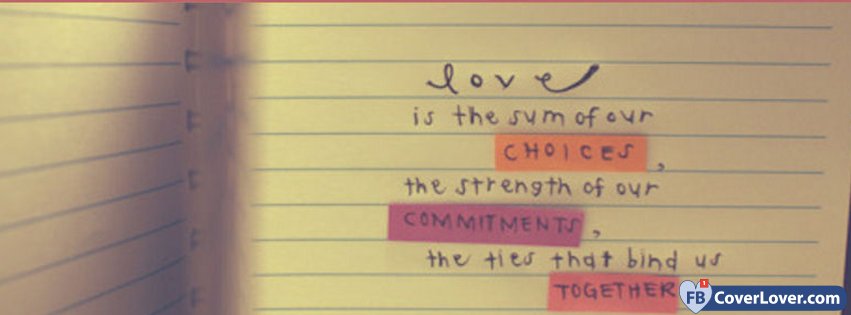 love
is the sum of our
CHOICES,
the strength of our
COMMITMENTS,
the ties that bind us
TOGETHER
FB 1 CoverLover.com